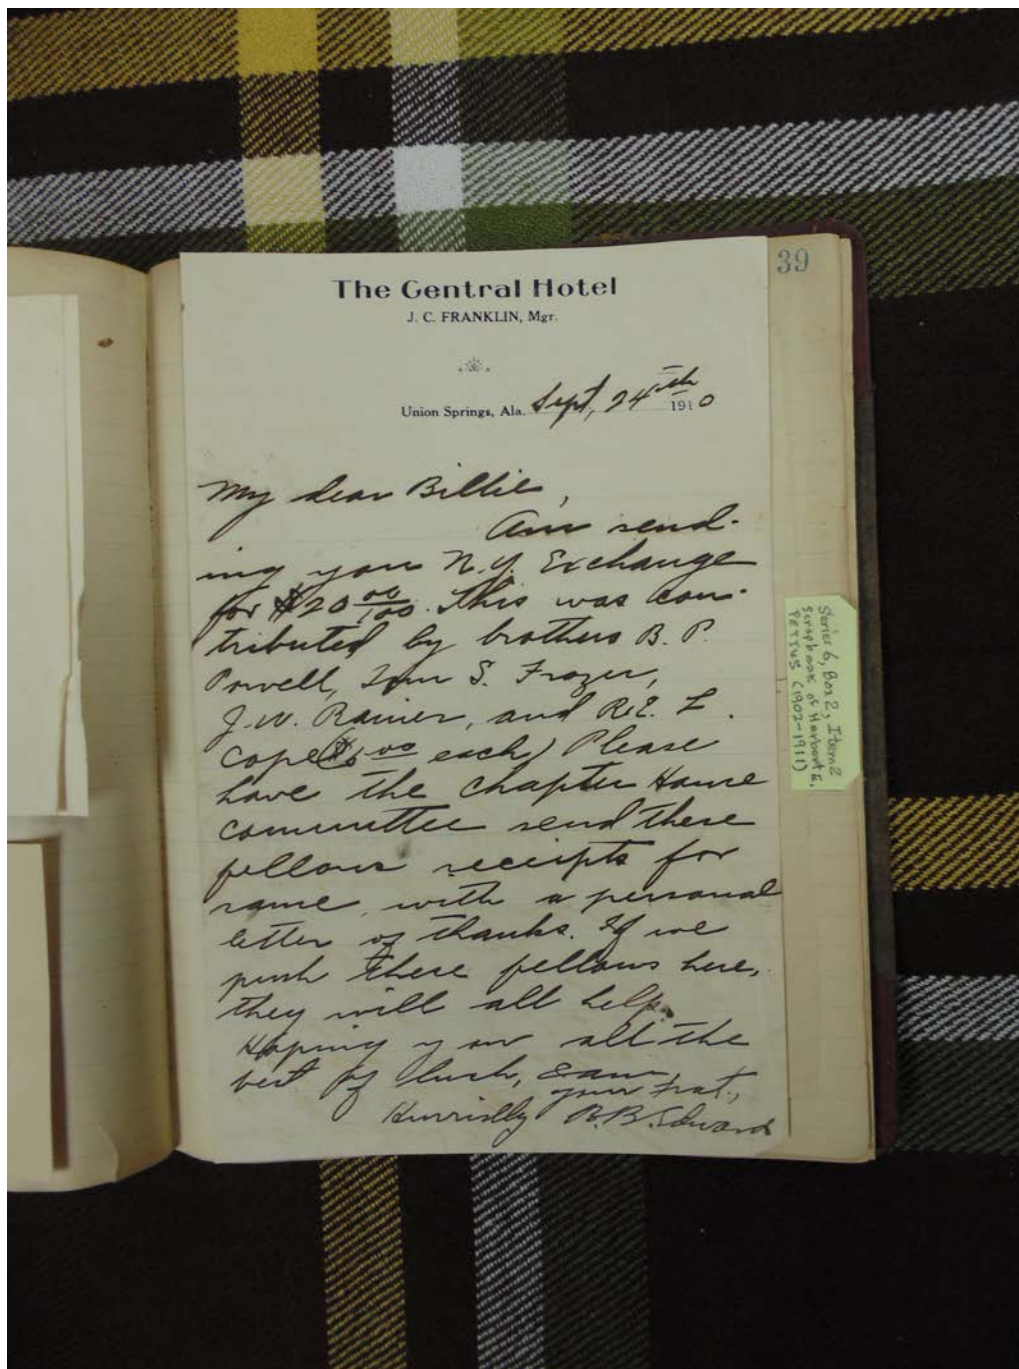 39
The Central Hotel
J. C. FRANKLIN, Mgr.
Union Springs, Ala. Sept, 24th 1910
My dear Billie,
Am send-
ing you N.Y. Exchange
for $20 00/100. This was con-
tributed by brothers B. P.
Powell, Tom S. Frazer,
J. W. Rainer, and R. E. L.
Cope ($5 00 each) Please
have the Chapter House
committee send these
fellows receipts for
same, with a personal
letter of thanks. If we
push these fellows here,
they will all help.
Hoping you all the
best of luck, I am,
your frat.,
Hurriedly B. B. Edwards
Series 6, Box 2, Item 2
Scrapbook of Herbert E.
PETTUS (1902-1911)